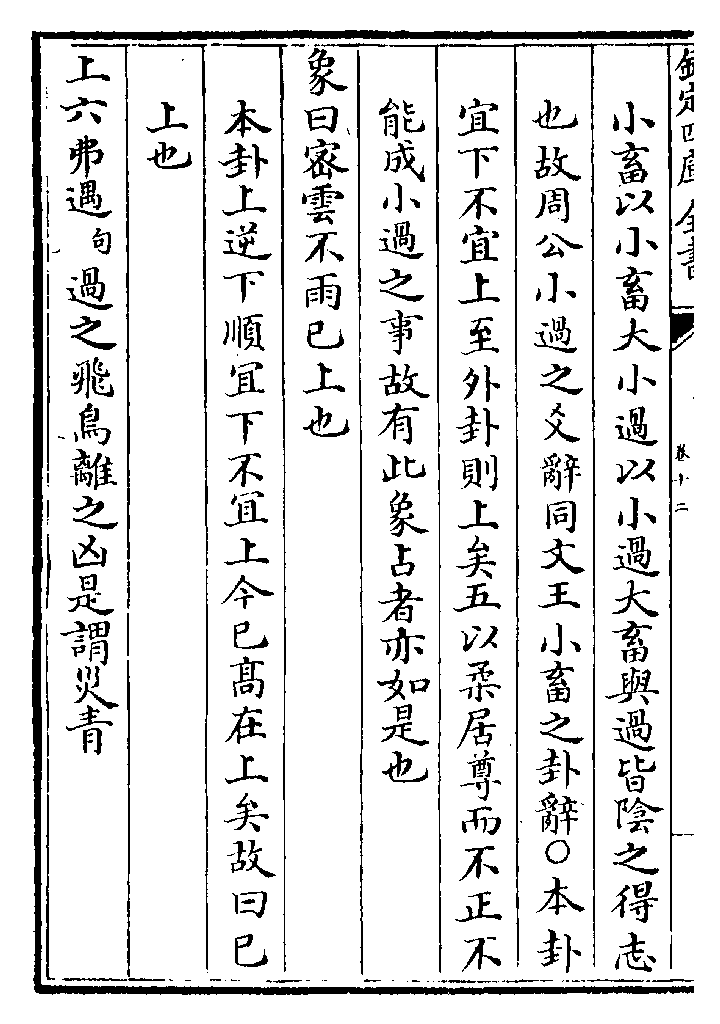 欽定四庫全書
卷十二
小畜以小畜大小過以小過大畜與過皆陰之得志
也故周公小過之爻辭同文王小畜之卦辭○本卦
宜下不宜上至外卦則上矣五以柔居尊而不正不
能成小過之事故有此象占者亦如是也
象曰密雲不雨已上也
本卦上逆下順宜下不宜上今已髙在上矣故曰已
上也
上六弗遇句過之飛鳥離之凶是謂災眚